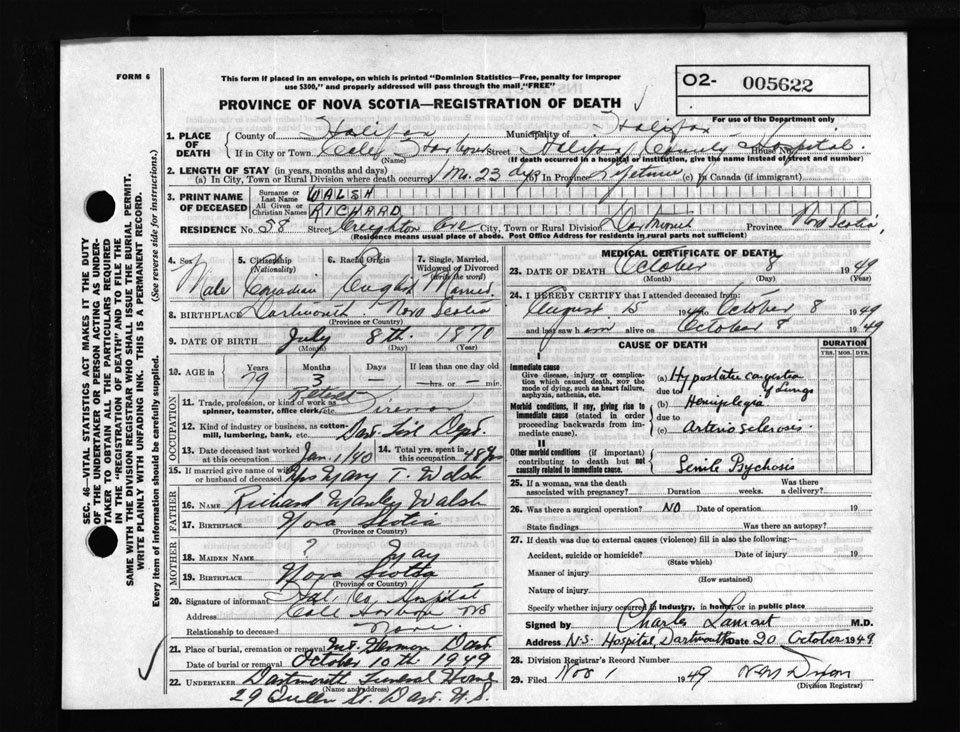 FORM 6
This form if placed in an envelope, on which is printed "Dominion Statistics—Free, penalty for improper
use $300," and properly addressed will pass through the mail "FREE"
O2- 005622
PROVINCE OF NOVA SCOTIA—REGISTRATION OF DEATH
For use of the Department only
1. PLACE OF DEATH
County of Halifax Municipality of Halifax
If in City or Town Cole Harbour Street Halifax County Hospital House No.
(Name) (If death occurred in a hospital or institution, give the name instead of street and number)
2. LENGTH OF STAY (in years, months and days)
(a) In City, Town or Rural Division where death occurred 1 Mo. 23 dys (b) In Province Lifetime (c) In Canada (if immigrant)
3. PRINT NAME OF DECEASED
Surname or Last Name WALSH
All Given or Christian Names RICHARD
RESIDENCE No. 58 Street Creighton Ave City, Town or Rural Division Dartmouth Province Nova Scotia,
(Residence means usual place of abode. Post Office Address for residents in rural parts not sufficient)
4. Sex
Male
5. Citizenship
(Nationality)
Canadian
6. Racial Origin
English
7. Single, Married,
Widowed or Divorced
(write the word)
Married
8. BIRTHPLACE Dartmouth, Nova Scotia
(Province or Country)
9. DATE OF BIRTH July 8th. 1870
(Month) (Day) (Year)
10. AGE in
Years Months Days If less than one day old
79 3 — — hrs. or — min.
OCCUPATION
11. Trade, profession, or kind of work as
spinner, teamster, office clerk, etc. Retired Fireman
12. Kind of industry or business, as cotton-
mill, lumbering, bank, etc. Dart. Fire Dept.
13. Date deceased last worked
at this occupation Jan. 1/40
14. Total yrs. spent in
this occupation 48 yrs
15. If married give name of wife
or husband of deceased Mrs Mary T. Walsh
FATHER
16. NAME Richard Walsh
17. BIRTHPLACE Nova Scotia
(Province or Country)
MOTHER
18. MAIDEN NAME ?
19. BIRTHPLACE Nova Scotia
(Province or Country)
20. Signature of informant Hal. Co. Hospital
Address Cole Harbour NS
Relationship to deceased None.
21. Place of burial, cremation or removal Mt. Hermon Dart
Date of burial or removal October 10th 1949
22. UNDERTAKER Dartmouth Funeral Home
(Name and address)
29 Queen St. Dart. N.S.
MEDICAL CERTIFICATE OF DEATH
23. DATE OF DEATH October 8 1949
(Month) (Day) (Year)
24. I HEREBY CERTIFY that I attended deceased from
August 15 1949 to October 8 1949
and last saw him alive on October 8 1949
CAUSE OF DEATH
DURATION
YRS. MOS. DYS.
I
Immediate cause
Give disease, injury or complica-
tion which caused death, NOT the
mode of dying, such as heart failure,
asphyxia, asthenia, etc.
(a) Hypostatic congestion
due to of Lungs
Morbid conditions, if any, giving rise to
immediate cause (stated in order
proceeding backwards from im-
mediate cause).
(b) Hemiplegia
due to
(c) Arterio sclerosis
II
Other morbid conditions (if important)
contributing to death but not
causally related to immediate cause.
Senile Psychosis
25. If a woman, was the death
associated with pregnancy? Duration weeks. Was there
a delivery?
26. Was there a surgical operation? NO Date of operation 19
State findings Was there an autopsy?
27. If death was due to external causes (violence) fill in also the following:—
Accident, suicide or homicide? Date of injury 19
(State which)
Manner of injury
(How sustained)
Nature of injury
Specify whether injury occurred in industry, in home, or in public place
Signed by Charles Lamart M.D.
Address N.S. Hospital, Dartmouth Date 20 October 1949
28. Division Registrar's Record Number
29. Filed Nov 1 1949 Dixon
(Division Registrar)
SEC. 46—VITAL STATISTICS ACT MAKES IT THE DUTY
OF THE UNDERTAKER OR PERSON ACTING AS UNDER-
TAKER TO OBTAIN ALL THE PARTICULARS REQUIRED
IN THE "REGISTRATION OF DEATH" AND TO FILE THE
SAME WITH THE DIVISION REGISTRAR WHO SHALL ISSUE THE BURIAL PERMIT.
WRITE PLAINLY WITH UNFADING INK. THIS IS A PERMANENT RECORD.
Every item of information should be carefully supplied. (See reverse side for instructions.)